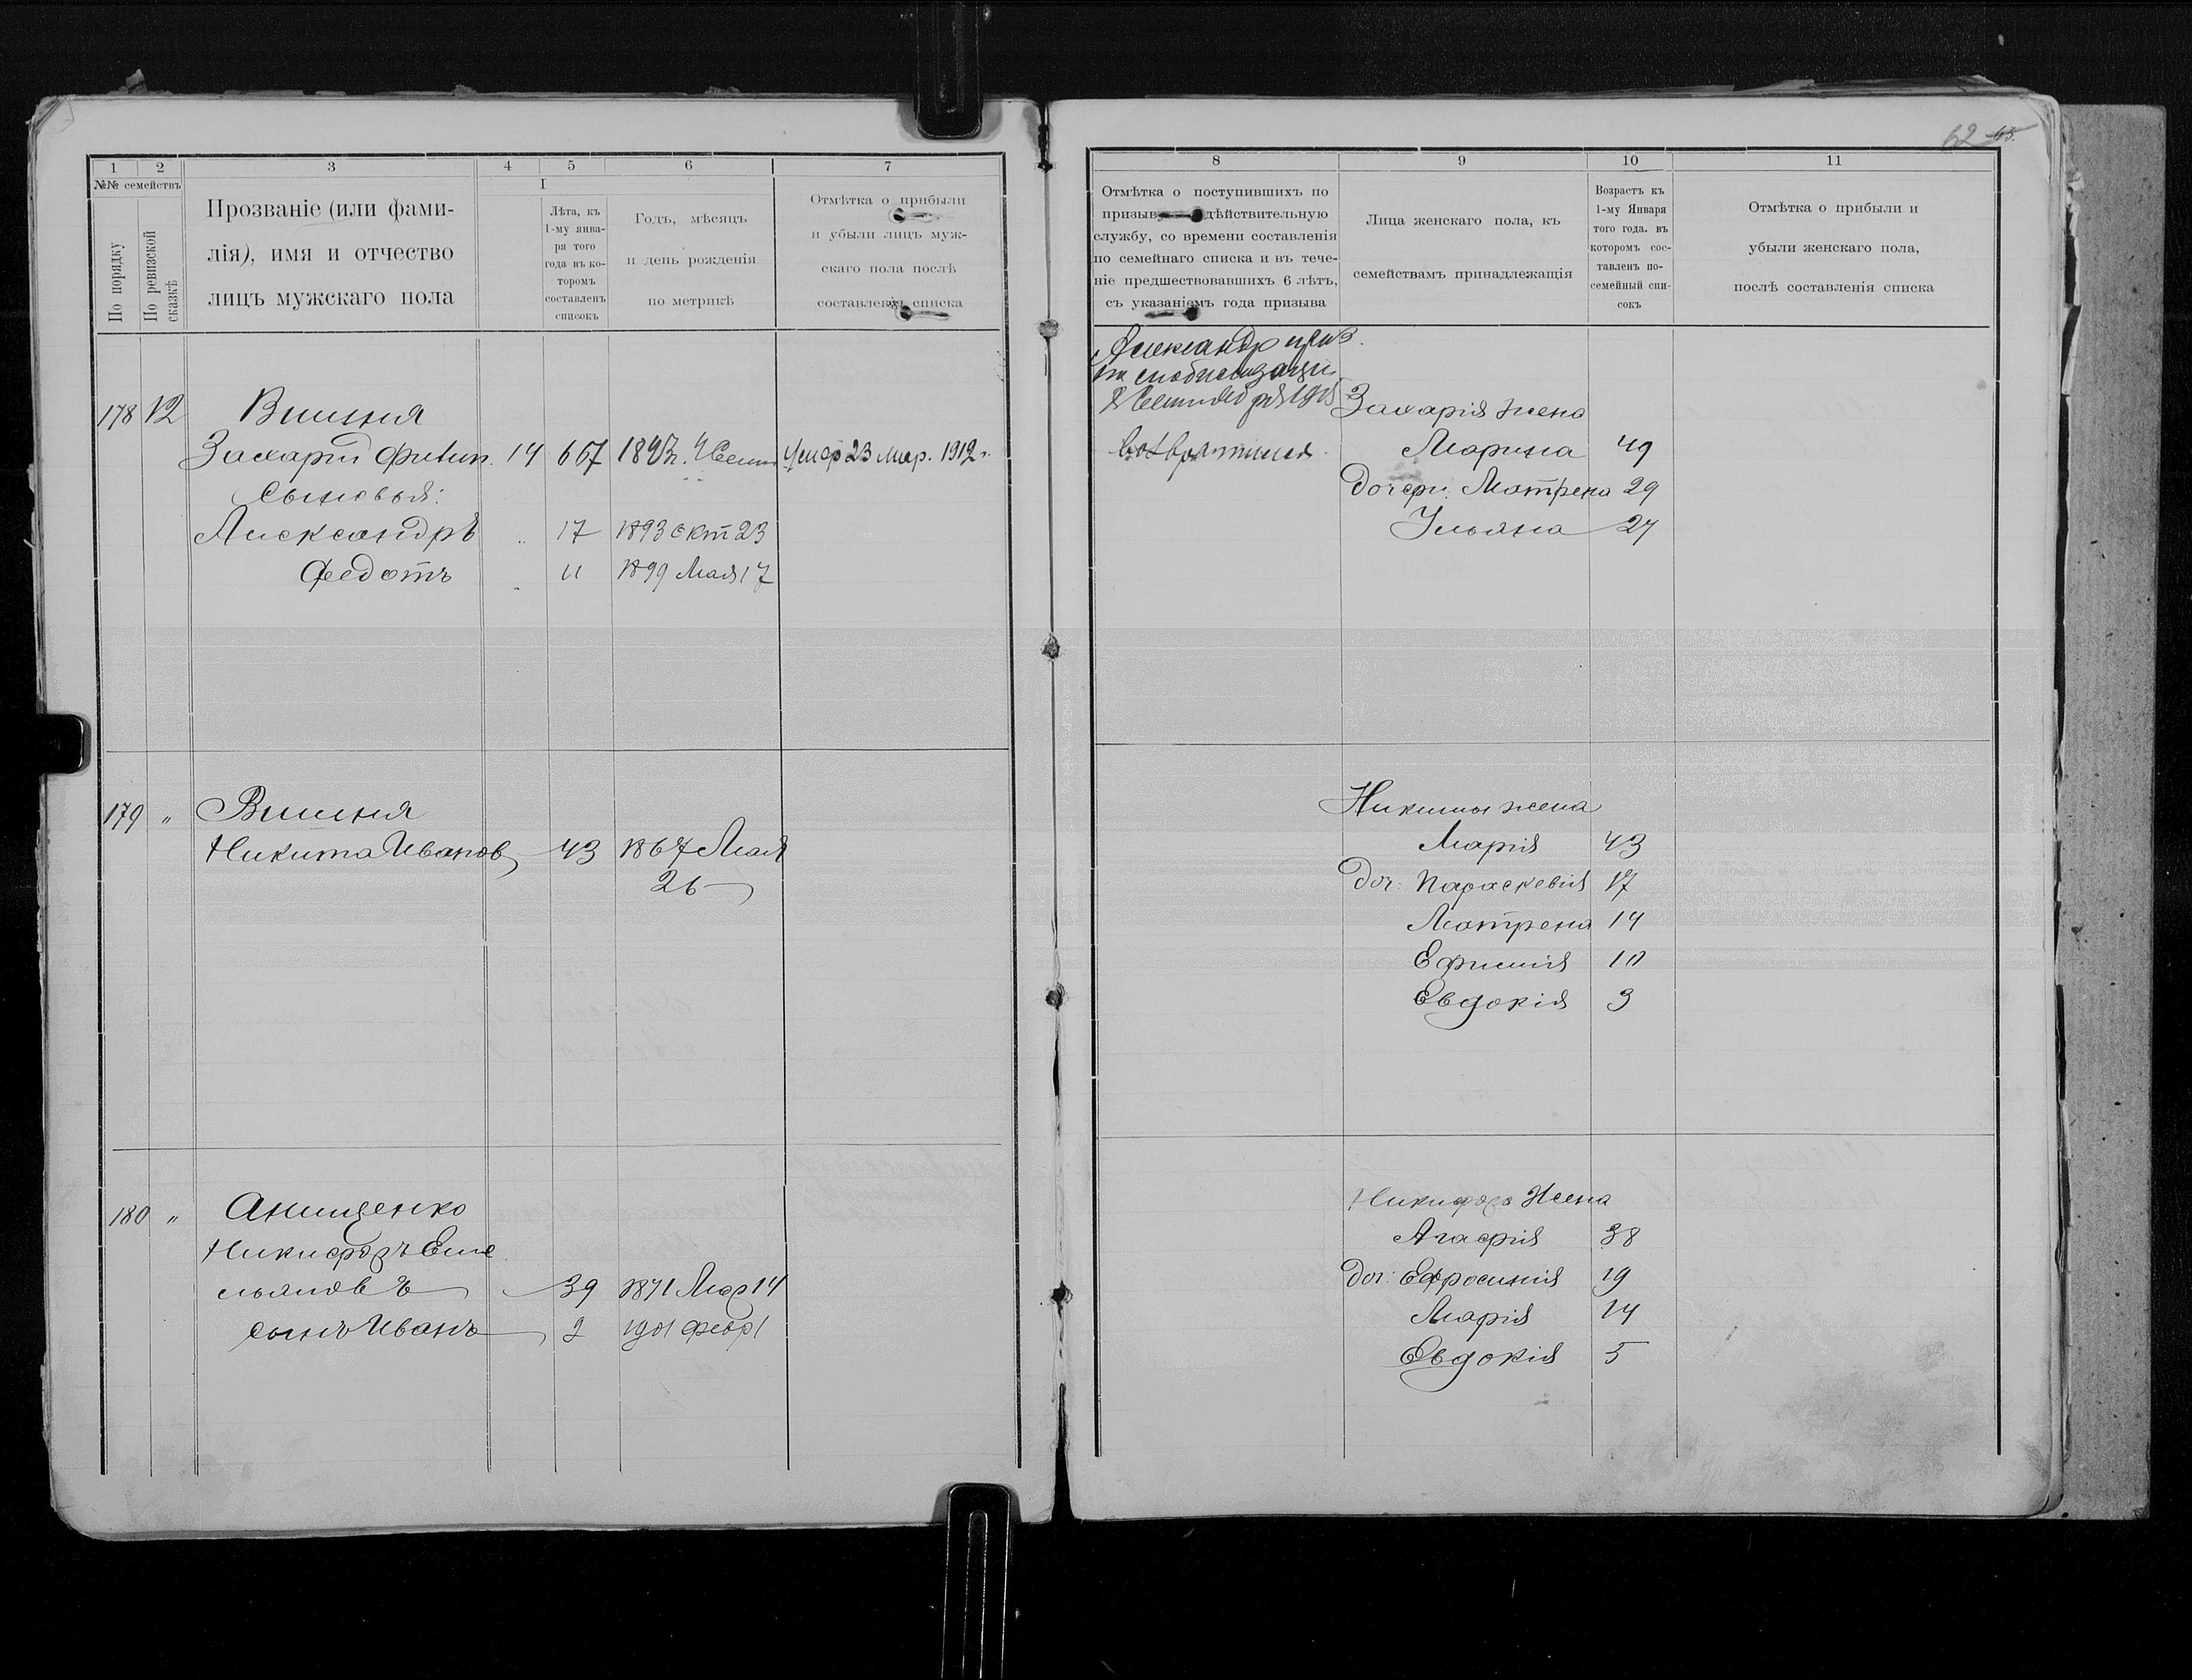 62 65.
1 2 3 4 5 6 7
№№ семействъ
По порядку
По ревизской сказкѣ
Прозваніе (или фами-
лія), имя и отчество
лицъ мужскаго пола
I
Лѣта, къ
1-му янва-
ря того
года въ ко-
торомъ
составленъ
списокъ
Годъ, мѣсяцъ
и день рожденія
по метрикѣ
Отмѣтка о прибыли
и убыли лицъ муж-
скаго пола послѣ
составленія списка
178 12 Вишня
Захарій Филип. 14 667 Сент Умер 23 мар. 1912 г.
Сыновья:
Александръ 17 1893 окт 23
Федотъ 11 1899 Мая 17
179 „ Вишня
Никита Иванов 43 1867 Мая
26
180 „ Анищенко
Никифоръ Еме
льяновъ 39 1871 Мар 14
сынъ Иванъ 2 1901 февр 1
8 9 10 11
Отмѣтка о поступившихъ по
призыв дѣйствительную
службу, со времени составленія
по семейнаго списка и въ тече-
ніе предшествовавшихъ 6 лѣтъ,
съ указаніемъ года призыва
Лица женскаго пола, къ
семействамъ принадлежащія
Возрастъ къ
1-му Января
того года. въ
которомъ сос-
тавленъ по-
семейный спи-
сокъ
Отмѣтка о прибыли и
убыли женскаго пола,
послѣ составленія списка
Александр приз.
по мобилизации
Сентября 1915
возвратился
Захарія жена
Марина 49
Дочери: Матрена 29
Ульяна 24
Никиты жена
Марія 43
Доч: Параскевія 17
Матрена 14
Ефимія 10
Евдокія 3
Никифора Жена
Агафія 38
Доч: Ефросинія 19
Марія 14
Евдокія 5